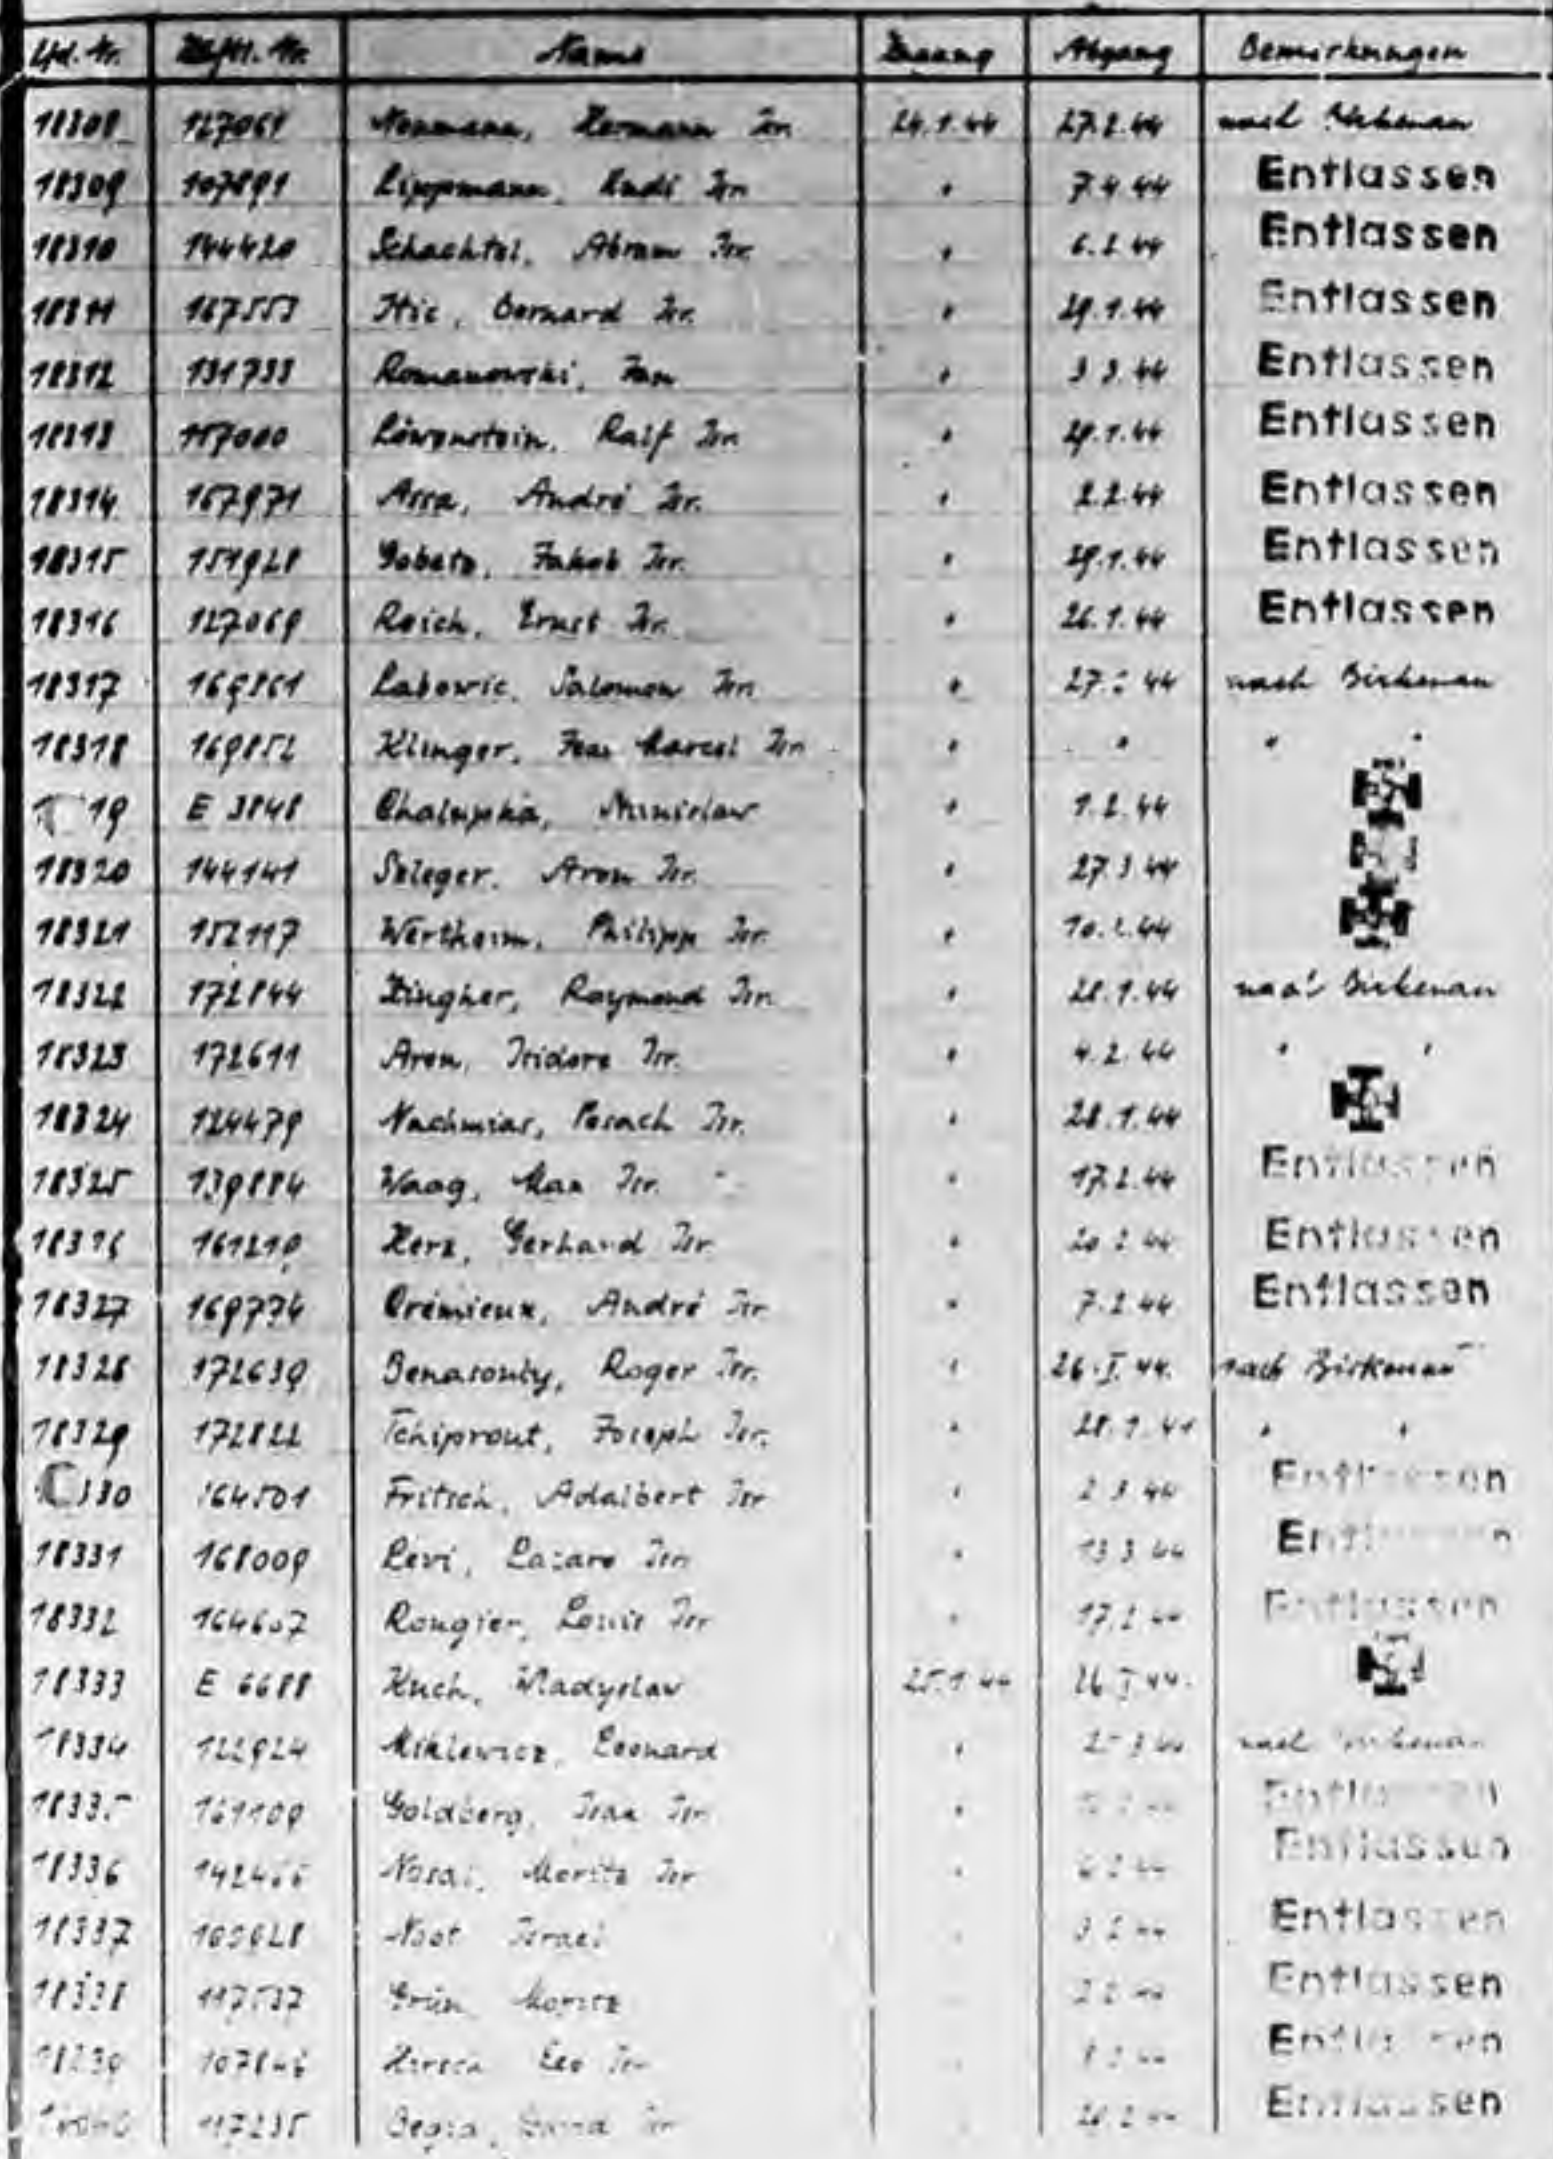 Lfd. Nr. Häftl. Nr. Name Zugang Abgang Bemerkungen
18308 127061 Neumann, Hermann Isr. 24.1.44 27.2.44 nach Birkenau
18309 107891 Lippmann, Rudi Isr. " 7.4.44 Entlassen
18310 144420 Schachtel, Abram Isr. " 6.2.44 Entlassen
18311 167553 Itic, Bernard Isr. " 29.1.44 Entlassen
18312 131733 Romanowski, Jan " 3.3.44 Entlassen
18313 117000 Löwenstein, Ralf Isr. " 29.1.44 Entlassen
18314 167971 Assa, André Isr. " 2.2.44 Entlassen
18315 151928 Gobetz, Jakob Isr. " 29.1.44 Entlassen
18316 127069 Reich, Ernst Isr. " 26.1.44 Entlassen
18317 169861 Labowic, Salomon Isr. " 27. 44 nach Birkenau
18318 169852 Klinger, Jean Marcel Isr. " " " "
19 E 3848 Chalupka, " 1.2.44
18320 144141 Szleger, Aron Isr. " 27.3.44
18321 152117 Wertheim, Philipp Isr. " 10.2.44
18322 172844 Zingher, Raymond Isr. " 28.1.44 nach Birkenau
18323 172611 Aron, Isidore Isr. " 4.2.44 " "
18324 124479 Nachmias, Pesach Isr. " 28.1.44
18325 139884 Waag, Max Isr. " 17.2.44 Entlassen
18326 161219 Herz, Gerhard Isr. " 20.2.44 Entlassen
18327 169774 Crémieux, André Isr. " 7.2.44 Entlassen
18328 172639 Roger Isr. " 26.I.44. nach Birkenau
18329 172822 Tchiprout, Joseph Isr. " 28.1.44 " "
330 164501 Fritsch, Adalbert Isr. " 2.3.44 Entlassen
18331 168009 Levi, Lazare Isr. " 13.3.44 Entlassen
18332 164607 Rougier, Louis Isr. " 17.2.44 Entlassen
18333 E 6688 Kuch, Wladyslaw 25.1.44 26.I.44.
18334 122924 Miklewicz, Leonard " nach Birkenau
18335 161109 Goldberg, Isr. " Entlassen
18336 Moritz Isr. " Entlassen
18337 Noot Israel " 3.2.44 Entlassen
18338 117537 Grün Moritz 2.2.44 Entlassen
18339 Hirsch Leo Isr. 8.2.44 Entlassen
117235 Isr. Entlassen